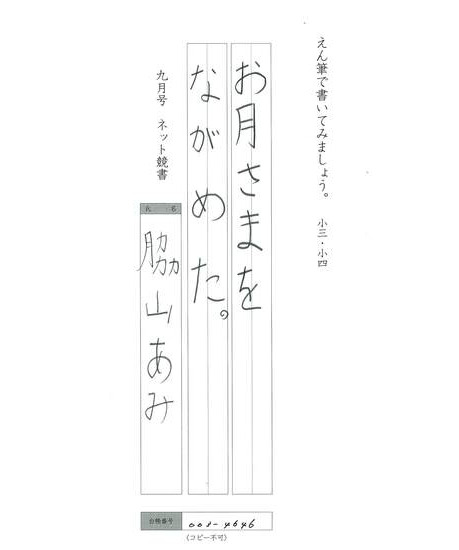 えん筆で書いてみましょう。 小三・小四
お月さまを
ながめた。
九月号 ネット競書
氏名
脇山あみ
台帳番号 008-4646
(コピー不可)